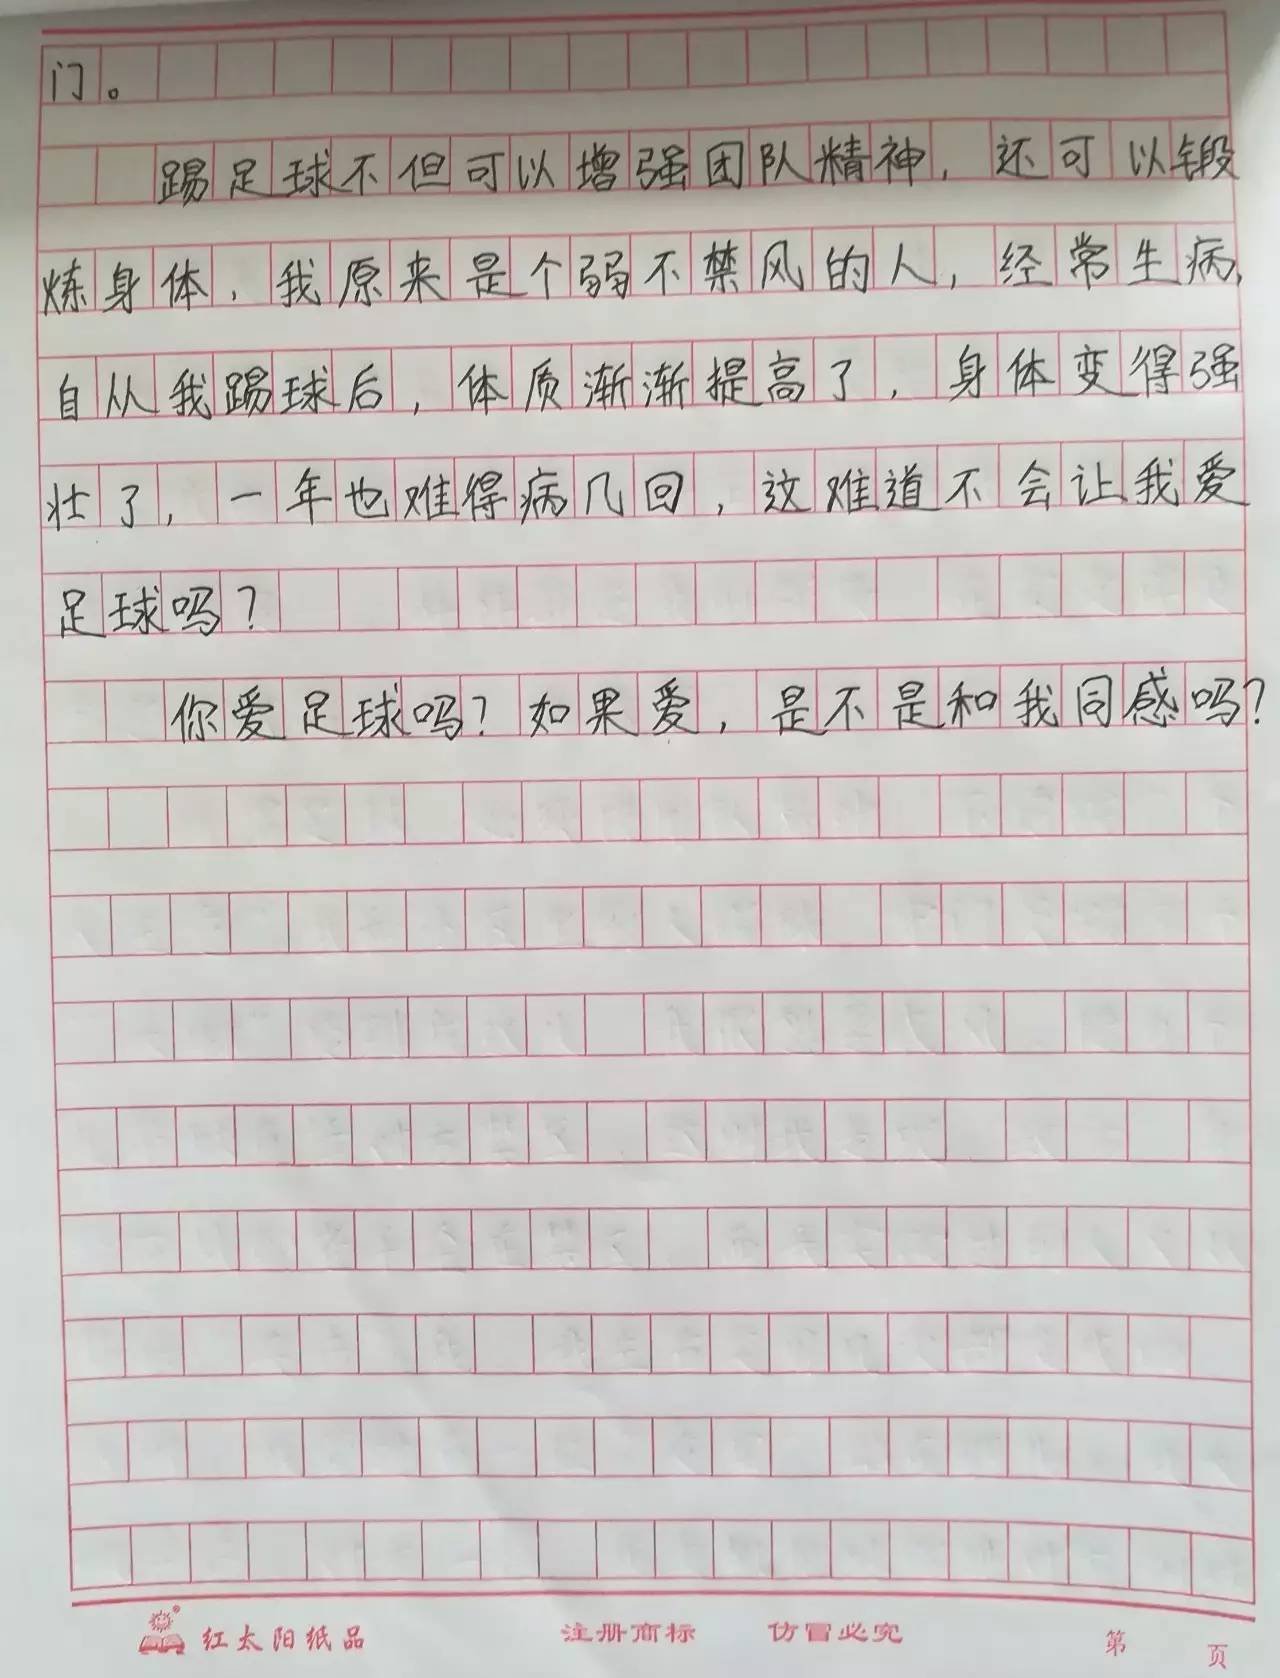 门。
踢足球不但可以增强团队精神，还可以锻
炼身体，我原来是个弱不禁风的人，经常生病，
自从我踢球后，体质渐渐提高了，身体变得强
壮了，一年也难得病几回，这难道不会让我爱
足球吗？
你爱足球吗？如果爱，是不是和我同感吗？
红太阳纸品 注册商标 仿冒必究 第 页